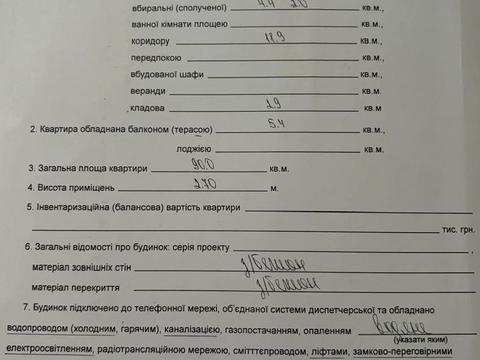 вбиральні (сполученої) 4.4 2.0 кв.м.,
ванної кімнати площею кв.м.,
коридору 11.9 кв.м.,
передпокою кв.м.,
вбудованої шафи кв.м.,
веранди кв.м.,
кладова 2.9 кв.м
2. Квартира обладнана балконом (терасою) 5.4 кв.м.,
лоджією кв.м.
3. Загальна площа квартири 90.0 кв.м.
4. Висота приміщень 2.70 м.
5. Інвентаризаційна (балансова) вартість квартири
тис. грн.
6. Загальні відомості про будинок: серія проекту ,
матеріал зовнішніх стін з/бетон
матеріал перекриття з/бетон
7. Будинок підключено до телефонної мережі, об'єднаної системи диспетчерської та обладнано
водопроводом (холодним, гарячим), каналізацією, газопостачанням, опаленням
(указати яким)
електроосвітленням, радіотрансляційною мережою, сміттєпроводом, ліфтами, замково-переговорними